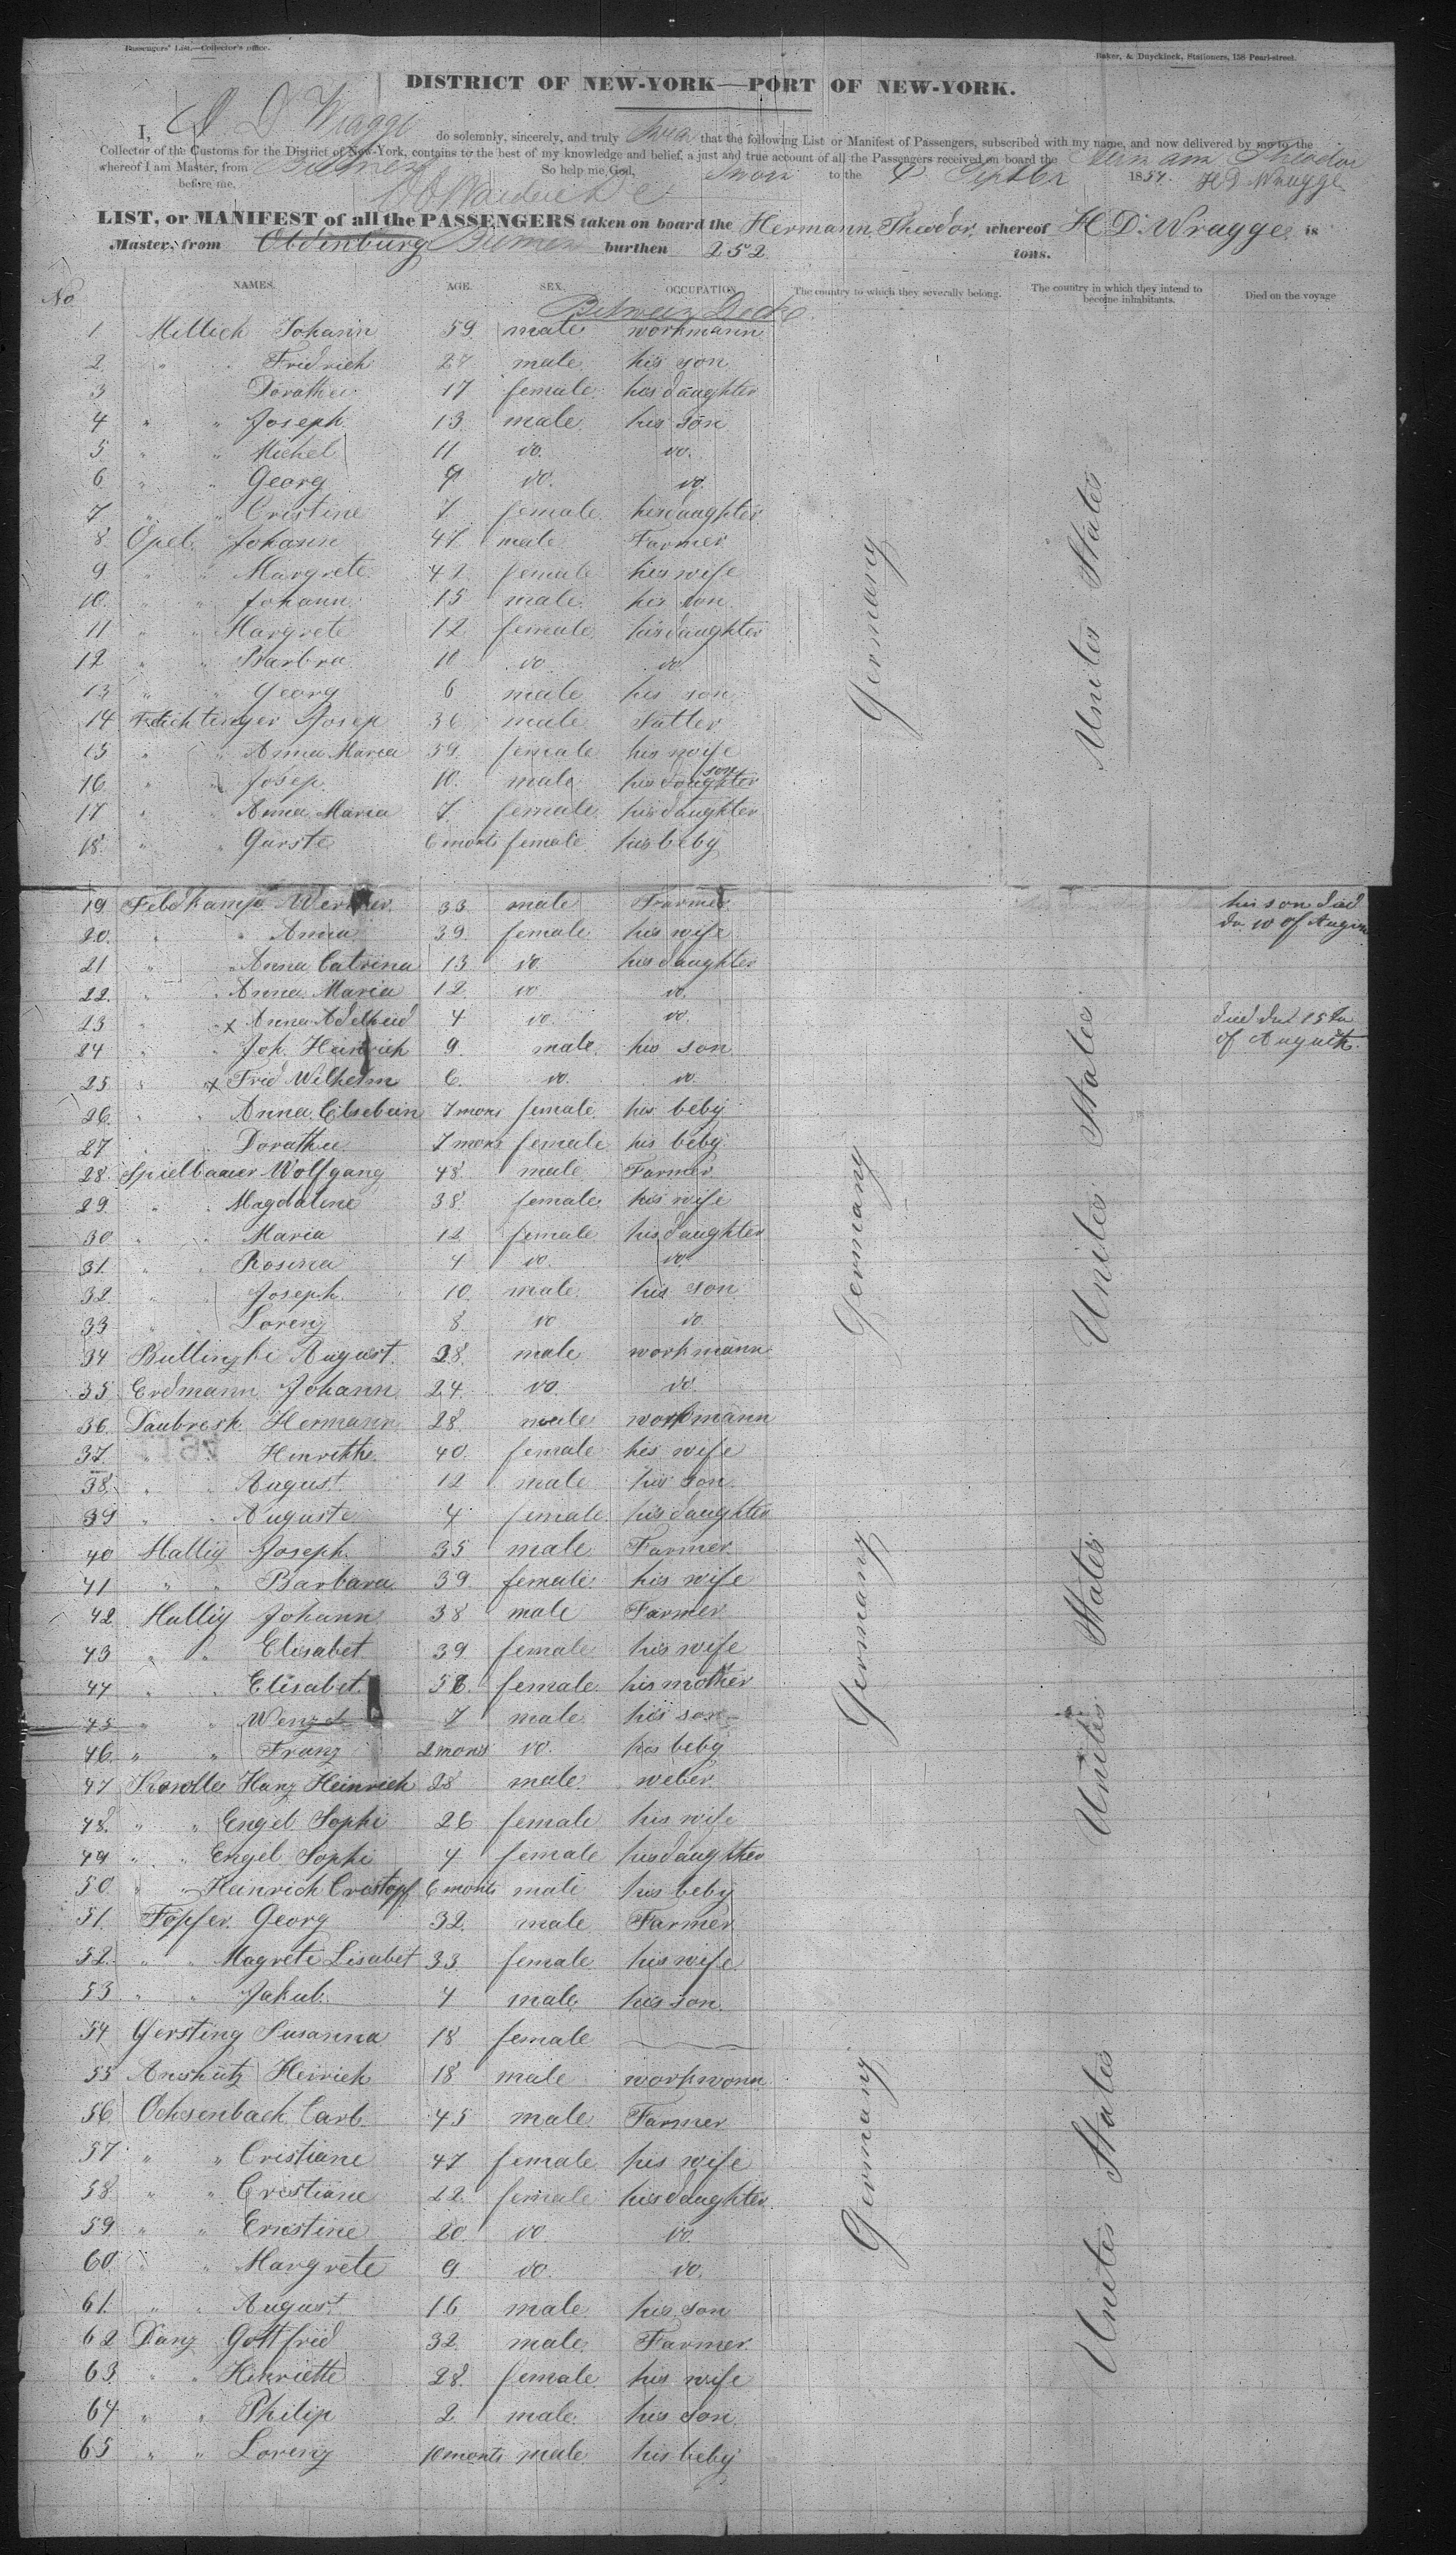 Passengers' List.—Collector's office.
Baker, & Duyckinck, Stationers, 158 Pearl-street.
DISTRICT OF NEW-YORK—PORT OF NEW-YORK.
I, H D Wragge do solemnly, sincerely, and truly that the following List or Manifest of Passengers, subscribed with my name, and now delivered by me to the
Collector of the Customs for the District of New-York, contains to the best of my knowledge and belief, a just and true account of all the Passengers received on board the Hermann Theodor
whereof I am Master, from Bremen So help me God, Sworn to the 4 1857. H D Wragge
before me,
LIST, or MANIFEST of all the PASSENGERS taken on board the Hermann Theodor, whereof H D. Wragge is
Master, from Oldenburg Bremen burthen 252 tons.
No NAMES. AGE. SEX. OCCUPATION The country to which they severally belong. The country in which they intend to become inhabitants. Died on the voyage
Between Decks.
1 Johann 59 male workmann
2 " " Fridrich male his son
3 Dorathea 17 female his daughter
4 " " Joseph 13 male his son
5 " " Michel 11 do. do.
6 " " Georg 9 do. do.
7 " " Cristine 7 female his daughter
8 Opel Johann 47 male Farmer
9 " " Margrete 42 female his wife
10 " " Johann 15 male his son
11 " " Margrete 12 female his daughter
12 " " Barbra 10 do do
13 " " Georg 6 male his son
14 Josep 36 male Sattler
15 " " Anna Maria 39 female his wife
16 " " Josep 10 male his daughter son
17 " " Anna Maria 7 female his daughter
18 " " Garste 6 monts female his beby
19 Feldkamp 33 male Farmer his son died
20 " " Anna 39 female his wife
21 " " Anna Catrina 13 do his daughter
22 " " Anna Maria 12 do do.
23 " x Anna Adelheid 4 do. do. died
24 " " Joh. Heinrich 9 male his son of August
25 " x Fried Wilhelm 6 do. do.
26 " " Anna Elsebein 7 mons female his beby
27 " " Dorathee 7 mons female his beby
28 Spielbauer Wolfgang 48 male Farmer
29 " " Magdaline 38 female his wife
30 " " Maria 12 female his daughter
31 " " Rosina 4 do. do
32 " " Joseph 10 male his son
33 " " Lorenz 8 do do.
34 August 28 male workmann
35 Erdmann Johann 24 do. do
36 Hermann 28 male workmann
37 " 40 female his wife
38 " " August 12 male his son
39 " " Auguste 4 female his daughter
40 Hallig Joseph 35 male Farmer
41 " " Barbara 39 female his wife
42 Hallig Johann 38 male Farmer
43 " " Elisabet 39 female his wife
44 " " Elisabet female his mother
45 " " Wenzel 7 male his son
46 " " Franz 2 mons do. his beby
47 Hanz Heinrich 28 male weber
48 " " Engel Sophi 26 female his wife
49 " " Engel Sophi 4 female his daughter
50 " " Heinrich Cristopf 6 monts male his beby
51 Töpfer Georg 32 male Farmer
52 " " Magrete Lisabet 33 female his wife
53 " " Jakub 4 male his son
54 Gersting Susanna 18 female
55 Anshütz Heirich 18 male workmann
56 Ochsenbach Carl 45 male Farmer
57 " " Cristiane 47 female his wife
58 " " Cristiane 22 female his daughter
59 " " Ernestine 20 do. do.
60 " " Margrete 9 do. do.
61 " " August 16 male his son
62 Danz Gottfried 32 male Farmer
63 " " Henriette 28 female his wife
64 " " Philip 2 male his son
65 " " Lorenz 10 monts male his beby
Germany
United States
Germany
United States
Germany
United States
Germany
United States